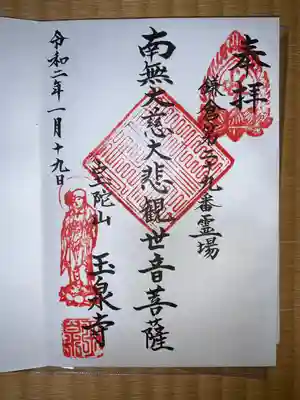 奉拝
鎌倉第二十九番霊場
南無大慈大悲觀世音菩薩
玉泉寺
令和二年一月十九日